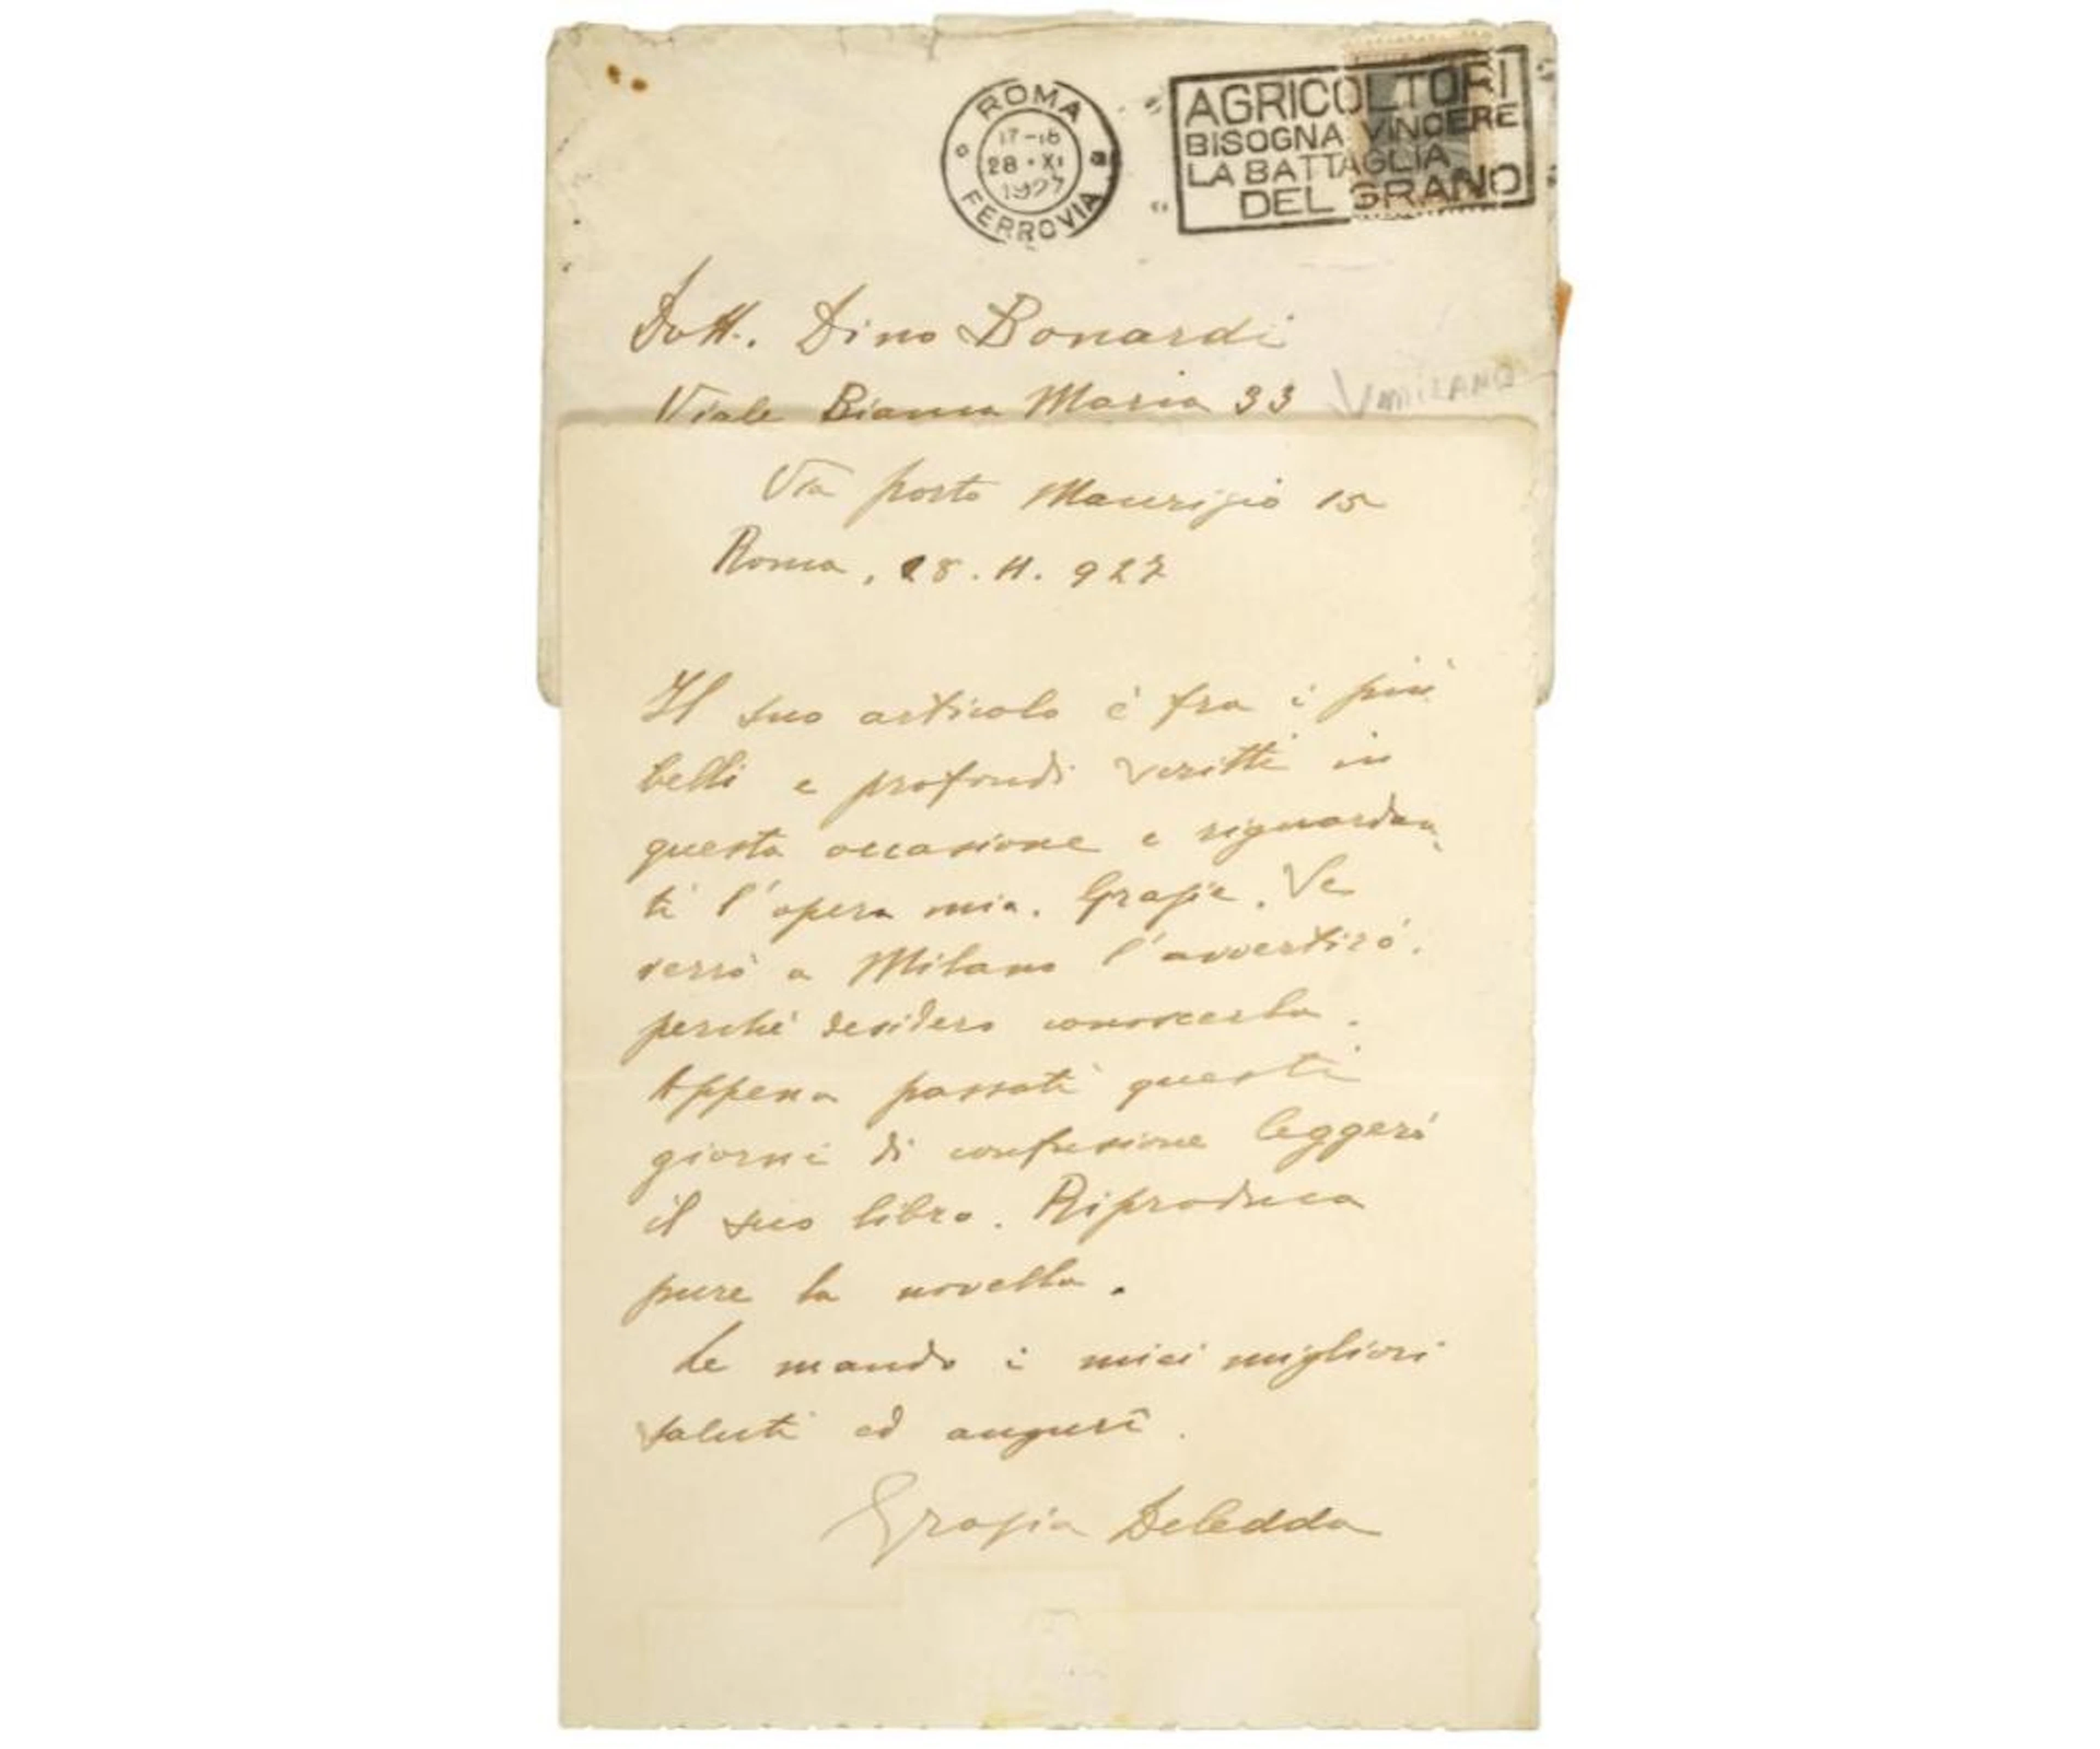 ROMA
17-18
28·XI
1927
FERROVIA
AGRICOLTORI
BISOGNA VINCERE
LA BATTAGLIA
DEL GRANO
Dott. Dino Bonardi
Viale Bianca Maria 33
MILANO
Via porto Maurizio 15
Roma, 28. 11. 927
Il suo articolo è fra i più
belli e profondi scritti in
questa occasione e riguardan-
ti l'opera mia. Grazie. Se
verrò a Milano l'avvertirò.
perché desidero conoscerla.
Appena passati questi
giorni di confusione leggerò
il suo libro. Riproduca
pure la novella.
Le mando i miei migliori
saluti ed auguri.
Grazia Deledda